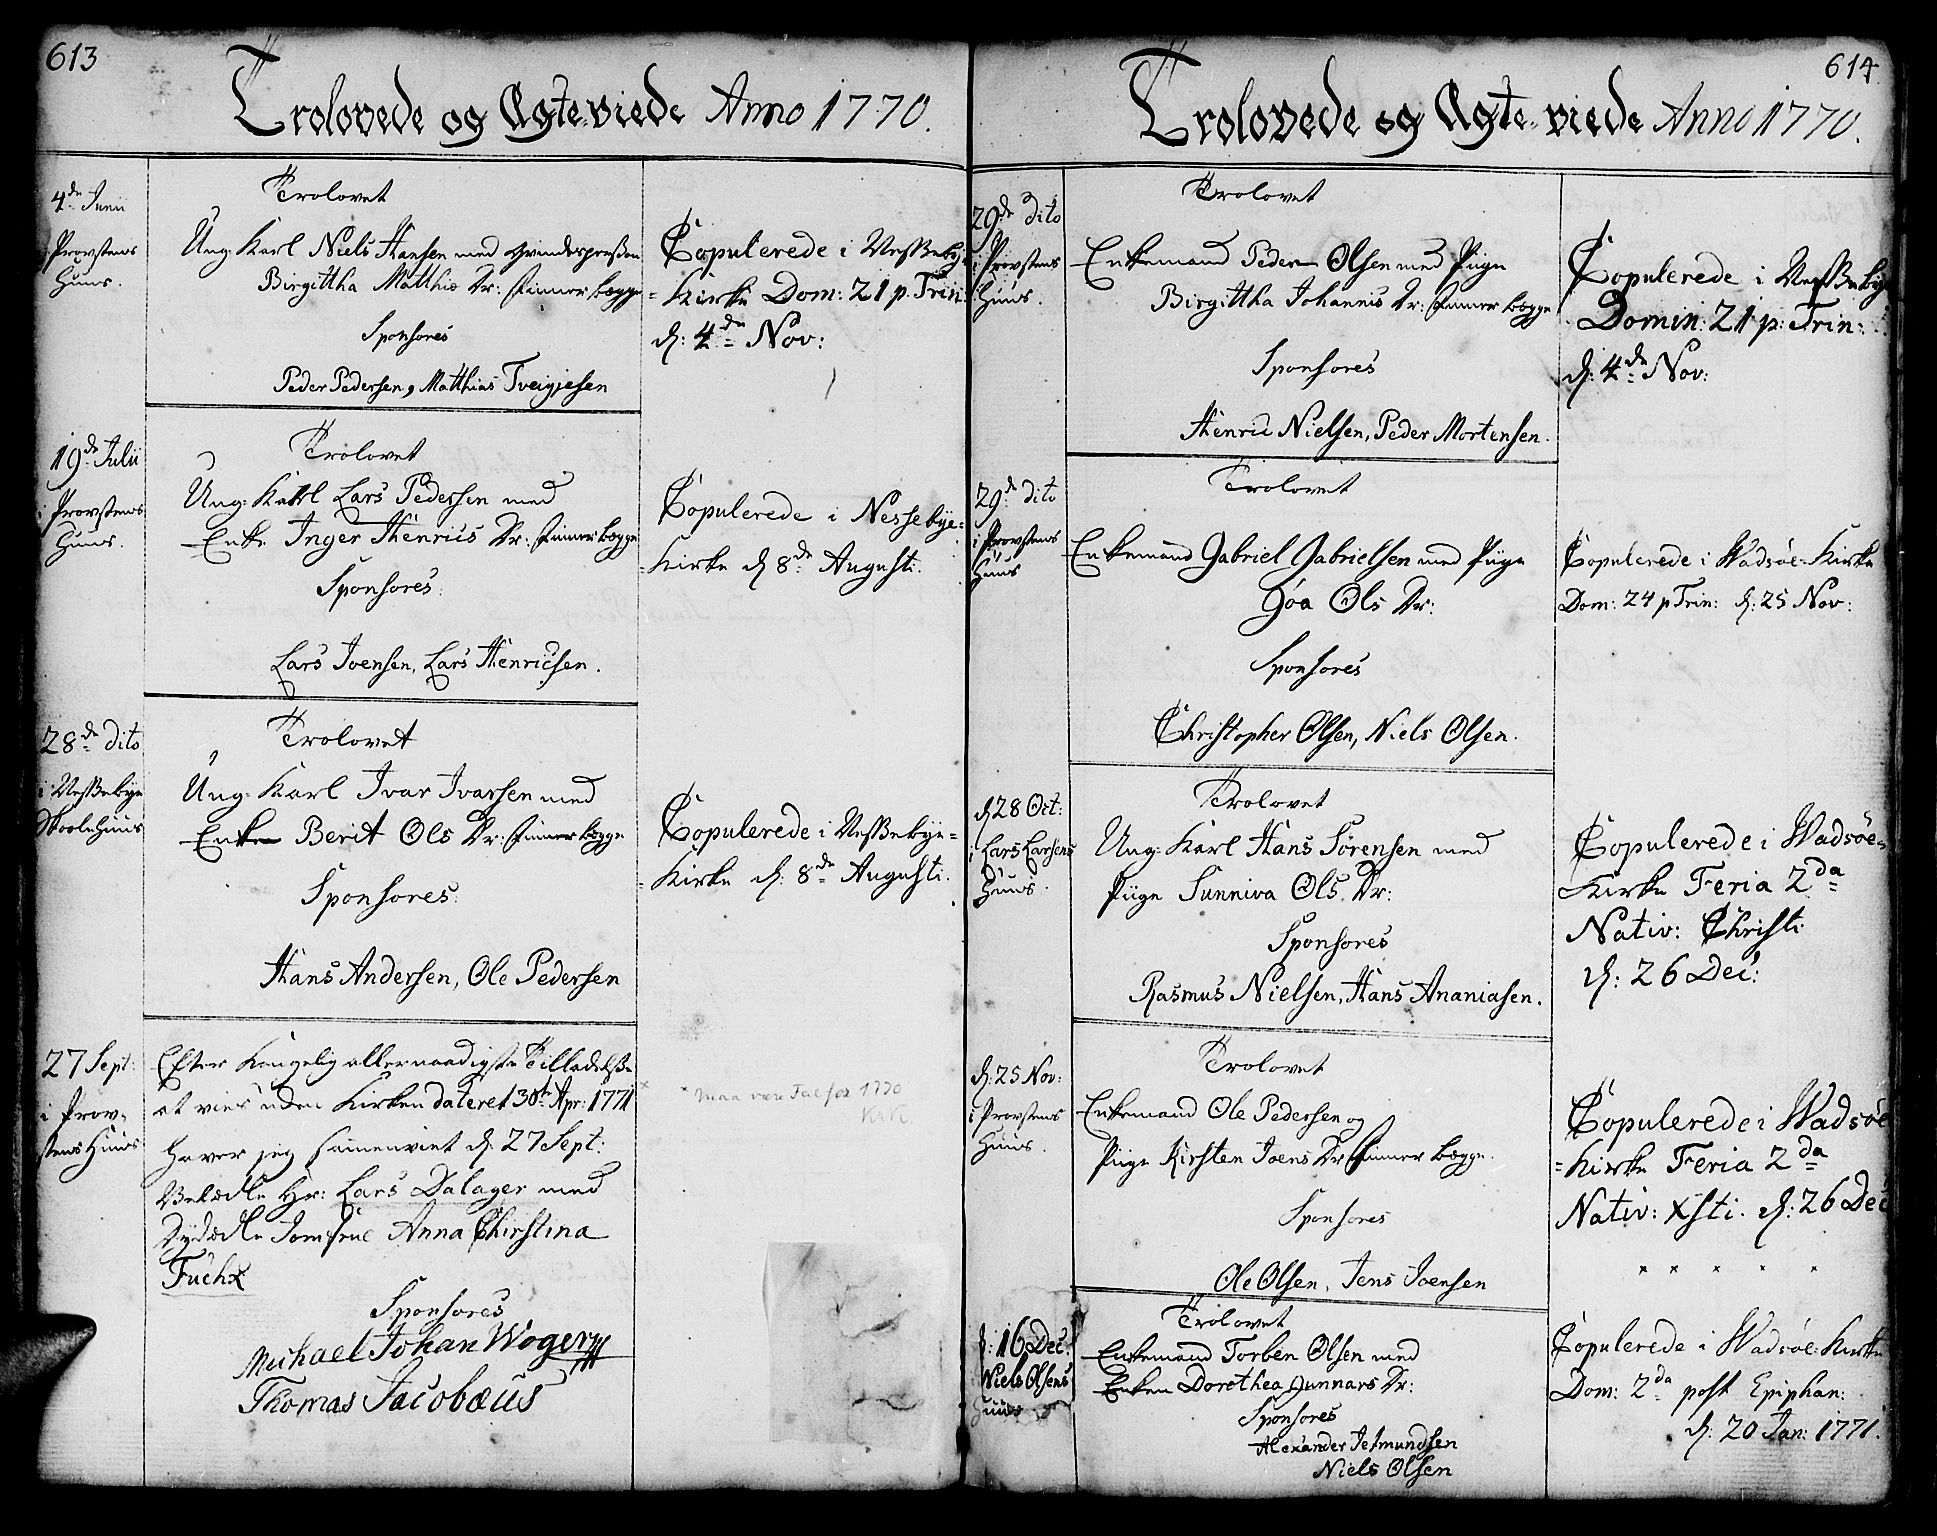 613
Trolovede og Ægte-viede Anno 1770.
4de Junii
i Provstens
Huus.
Trolovet
Ung Karl Niels Hansen med Qvindespersohn
Birgittha Matthis Dr: Finner begge
Sponsores
Peder Pedersen, Matthias Tveigjesen
Copulerede i Nessebye
=Kirke Dom: 21 p. Trin:
d: 4de Nov:
19de Julii
i Provstens
Huus.
Trolovet
Ung Karl Lars Pedersen med
Enke Inger Henrics Dr: Finner begge
Sponsores:
Lars Joensen, Lars Henricsen.
Copulerede i Nessebye=
=Kirke d 8de Augusti.
28de dito
i Nessebye
Skoele Huus
Trolovet
Ung Karl Ivar Ivarsen med
Enken Berit Ols Dr: Finner begge
Sponsores:
Hans Andersen, Ole Pedersen
Copulerede i Nessebye=
=Kirke d: 8de Augusti.
27 Sept:
i Prov-
stens Huus
Efter Kongelig allernaadigste Tilladelse
at vies uden Kirken dateret 30te Apr: 1771
haver jeg sammenviet d. 27 Sept:
Velædle Hr: Lars Dalager med
Dydædle Jomfrue Anna Christina
Fuchx
Sponsores
Michael Johan Woger
Thomas Jacobæus
× × maa være Feil for 1770
614
Trolovede og Ægte-viede Anno 1770.
29de dito
i Provstens
Huus.
Trolovet
Enkemand Peder Olsen med Piige
Birgittha Johannis Dr: Finner begge
Sponsores
Henric Nielsen, Peder Mortensen.
Copulerede i Nessebye
Domin: 21 p: Trin:
d: 4de Nov:
29de dito
i Provstens
Huus
Trolovet
Enkemand Gabriel Gabrielsen med Piige
Goa Ols Dr:
Sponsores
Christopher Olsen, Niels Olsen.
Copulerede i Wadsöe Kirke
Dom: 24 p Trin: d: 25 Nov:
d 28 Oct:
i Lars Larsens
Huus.
Trolovet
Ung Karl Hans Sörensen med
Piige Sunniva Ols Dr:
Sponsores
Rasmus Nielsen, Hans Ananiasen.
Copulerede i Wadsöe=
Kirke Feria 2da
Nativ: Christi
d: 26 Dec:
d. 25 Nov:
i Provstens
Huus.
Trolovet
Enkemand Ole Pedersen og
Piige Kirsten Joens Dr Finner begge.
Sponsores
Ole Olsen, Jens Joensen
Copulerede i Wadsöe
=Kirke Feria 2da
Nativ: Xsti. d: 26 Dec
× × × × ×
d: 16 Dec:
Niels Olsens
Huus
Trolovet
Enkemand Torben Olsen med
Enken Dorothea Gunnars Dr:
Sponsores
Alexander Jetmundsen
Niels Olsen
Copulerede i Wadsöe Kirke
Dom: 2da post Epiphan:
d: 20 Jan: 1771.